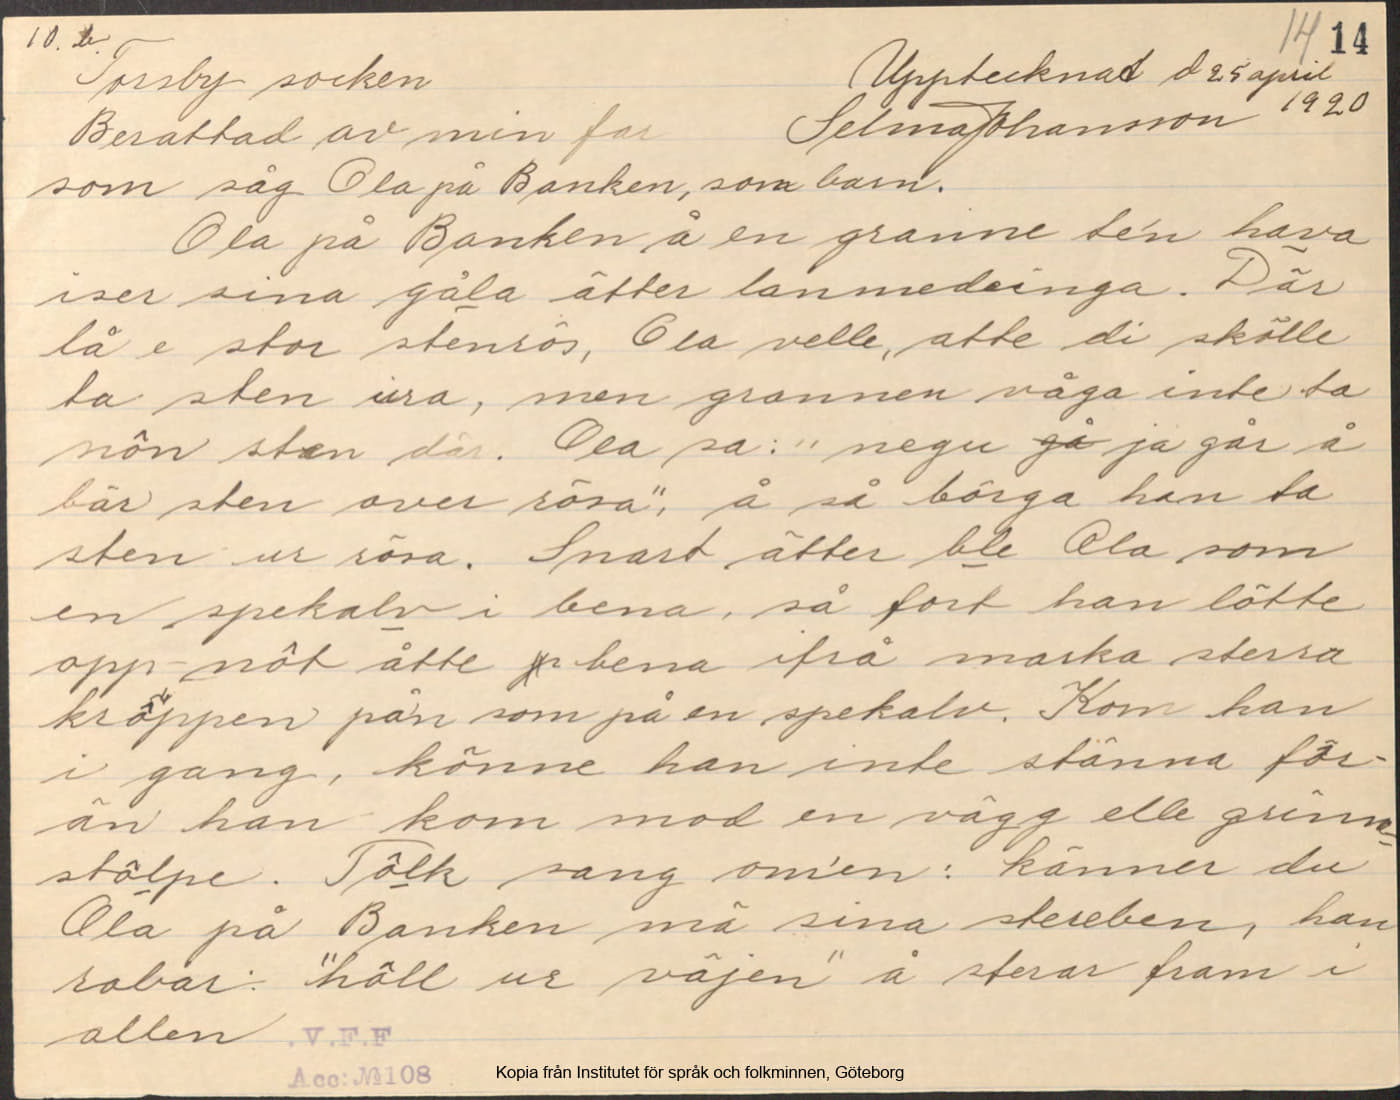 10. b. 14 14
Torsby socken Upptecknad d 25 april
Berättad av min far Selma Johansson 1920
som såg Ola på Banken, som barn.
Ola på Banken å en granne te'n hava
iser sina gåla ätter lanmedeinga. Där
lå e stor stenrös, Ola velle, atte di skôlle
ta sten ura, men grannen våga inte ta
nôn sten där. Ola sa: "negu gå ja går å
bär sten över rösa", å så börga han ta
sten ur rösa. Snart ätter ble Ola som
en spekalv i bena, så fort han lötte
opp nôt åtte bena ifrå marka sterra
kröppen på'n som på en spekalv. Kom han
i gang, kônne han inte stänna för-
än han kom mod en vägg elle grinn
stôlpe. Tôlk sang om'en: känner du
Ola på Banken mä sina stereben, han
robar: "hôll ur väjen" å sterar fram i
allen
.V.F.F
Acc: №108
Kopia från Institutet för språk och folkminnen, Göteborg